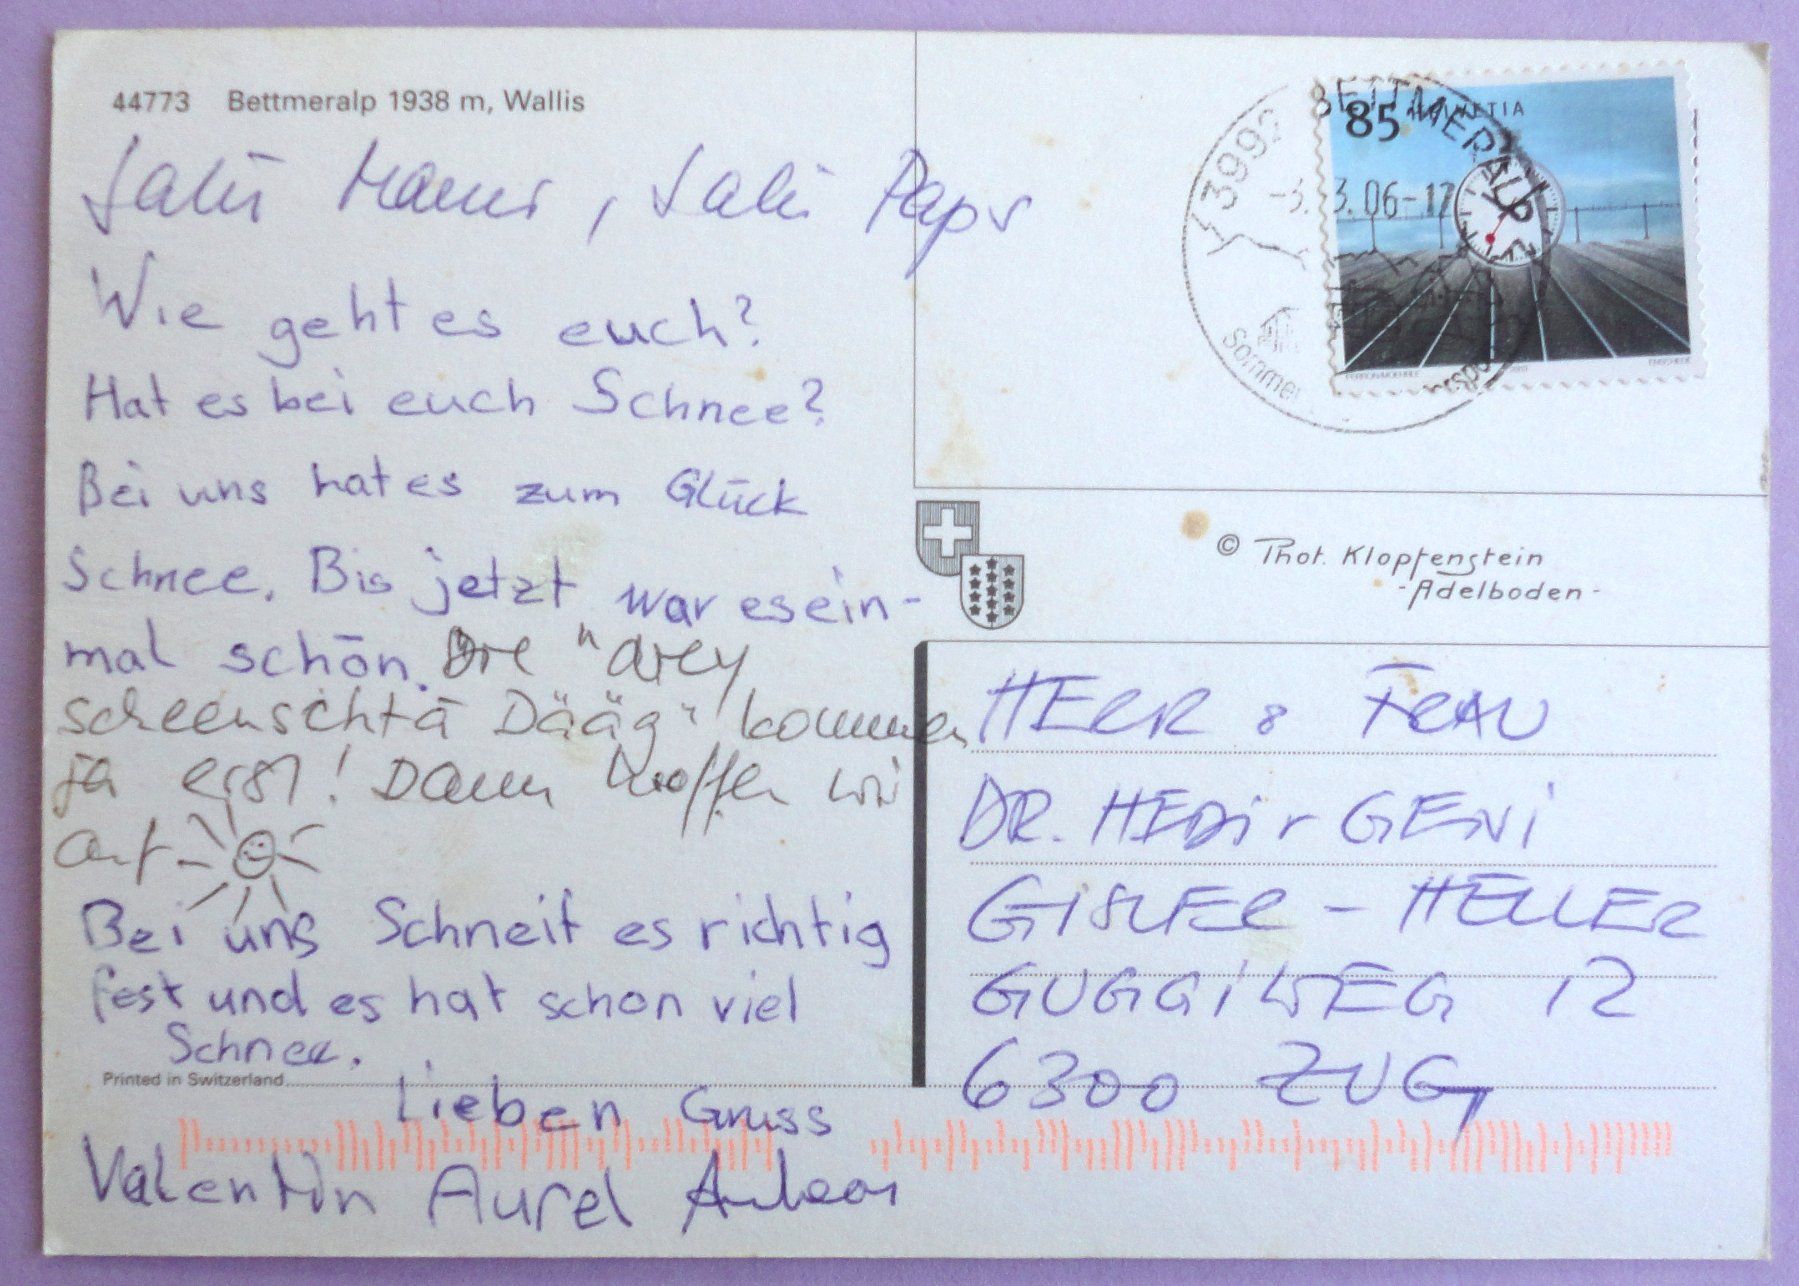 44773 Bettmeralp 1938 m, Wallis
Salü Mami, Salü Papi
Wie geht es euch?
Hat es bei euch Schnee?
Bei uns hat es zum Glück
Schnee. Bis jetzt war es ein-
mal schön. Die "drey
scheenschtä Dääg" kommen
ja erst! Dann hoffen wir
auf
Bei uns Schneit es richtig
fest und es hat schon viel
Schnee.
Lieben Gruss
Valentin Aurel
Printed in Switzerland
85 HELVETIA
3992 BETTMERALP
3.06-17
Sommer
© Phot. Klopfenstein
-Adelboden-
HERR & FRAU
DR. HEDI + GENI
GISLER - HELLER
GUGGIWEG 12
6300 ZUG